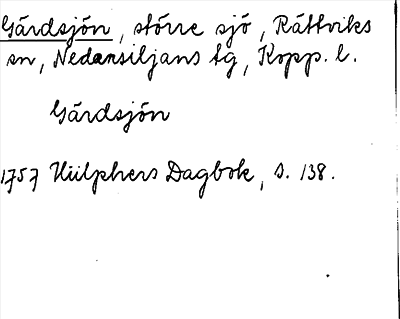 Gärdsjön, större sjö, Rättviks
sn, Nedansiljans tg, Kopp. l.
Gärdsjön
1757 Hülphers Dagbok, s. 138.